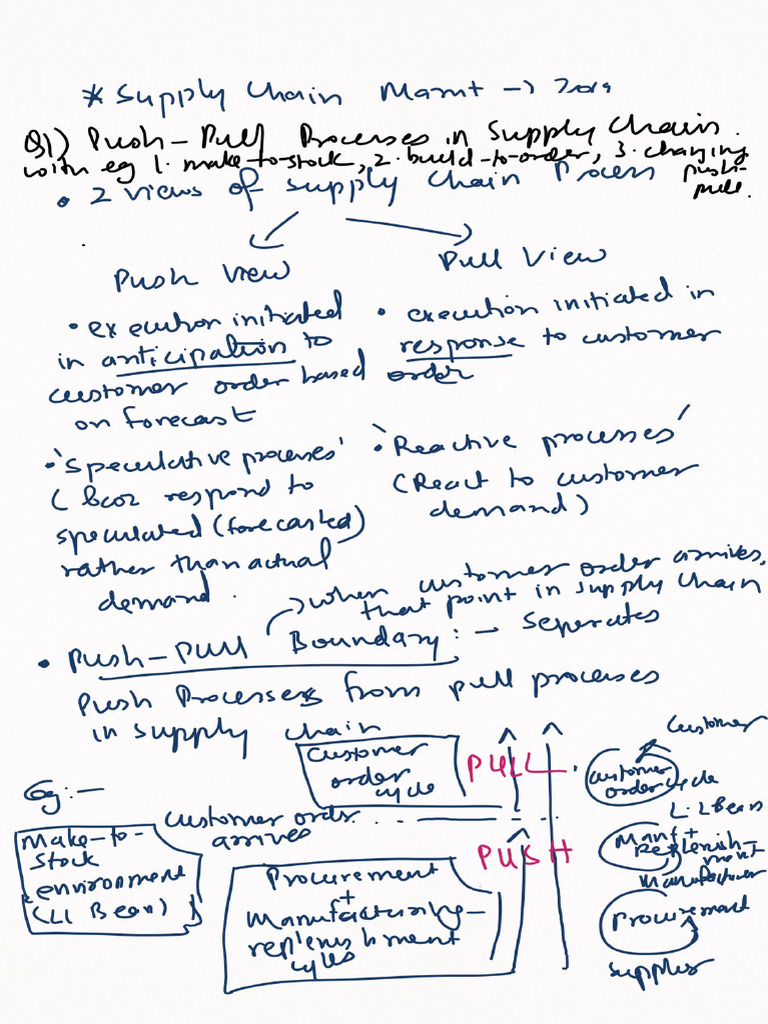 * Supply Chain Mgmt → 2019
Q1) Push-Pull Processes in Supply Chain.
with eg 1. make-to-stock, 2. build-to-order, 3. changing push-pull.
• 2 views of supply chain Process
Push View
• execution initiated
in anticipation to
customer order based
on forecast
• 'speculative processes'
(bcoz respond to
speculated (forecasted)
rather than actual
demand.
Pull View
• execution initiated in
response to customer
order
• 'Reactive processes'
(React to customer
demand)
when customer order arrives,
that point in supply chain
• Push-Pull Boundary: - Seperates
Push Processes from pull processes
in supply chain
Eg:-
Make-to-
Stock
environment
(LL Bean)
Customer
order
cycle
PULL
customer order
arrives
PUSH
Procurement
+
Manufacturing-
replenishment
cycles
Customer
customer
order cycle
L. L Bean
Manf +
Replenish-
ment
manufacturer
Procurement
supplier